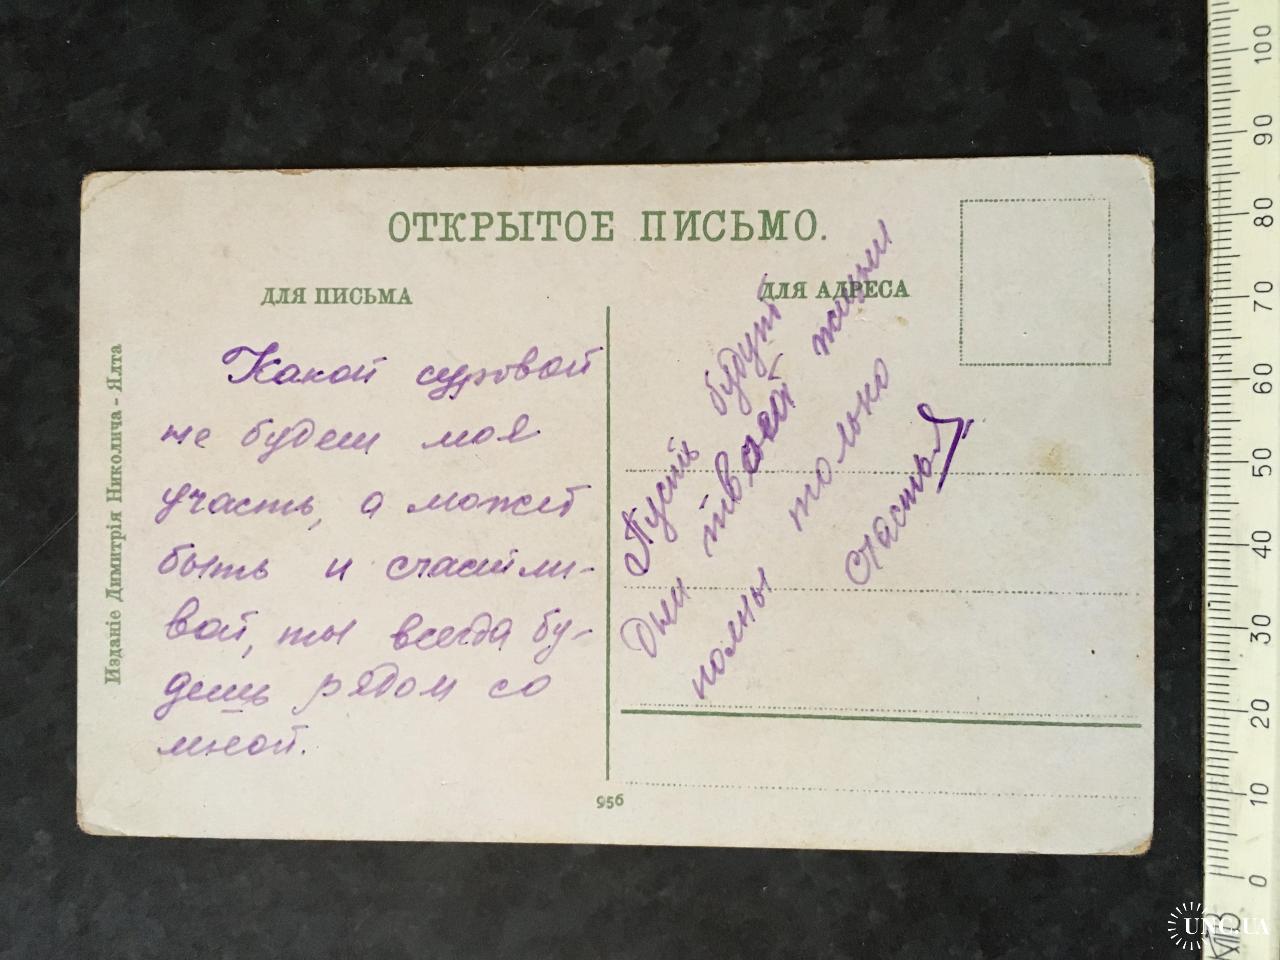 ОТКРЫТОЕ ПИСЬМО.
ДЛЯ ПИСЬМА
ДЛЯ АДРЕСА
Изданіе Димитрія Николича - Ялта
Какой суровой
не будет моя
участь, а может
быть и счастли-
вой, ты всегда бу-
дешь рядом со
мной.
Пусть будут
дни твоей жизни
полны только
счастья
956
0
10
20
30
40
50
60
70
80
90
100
UNC.UA